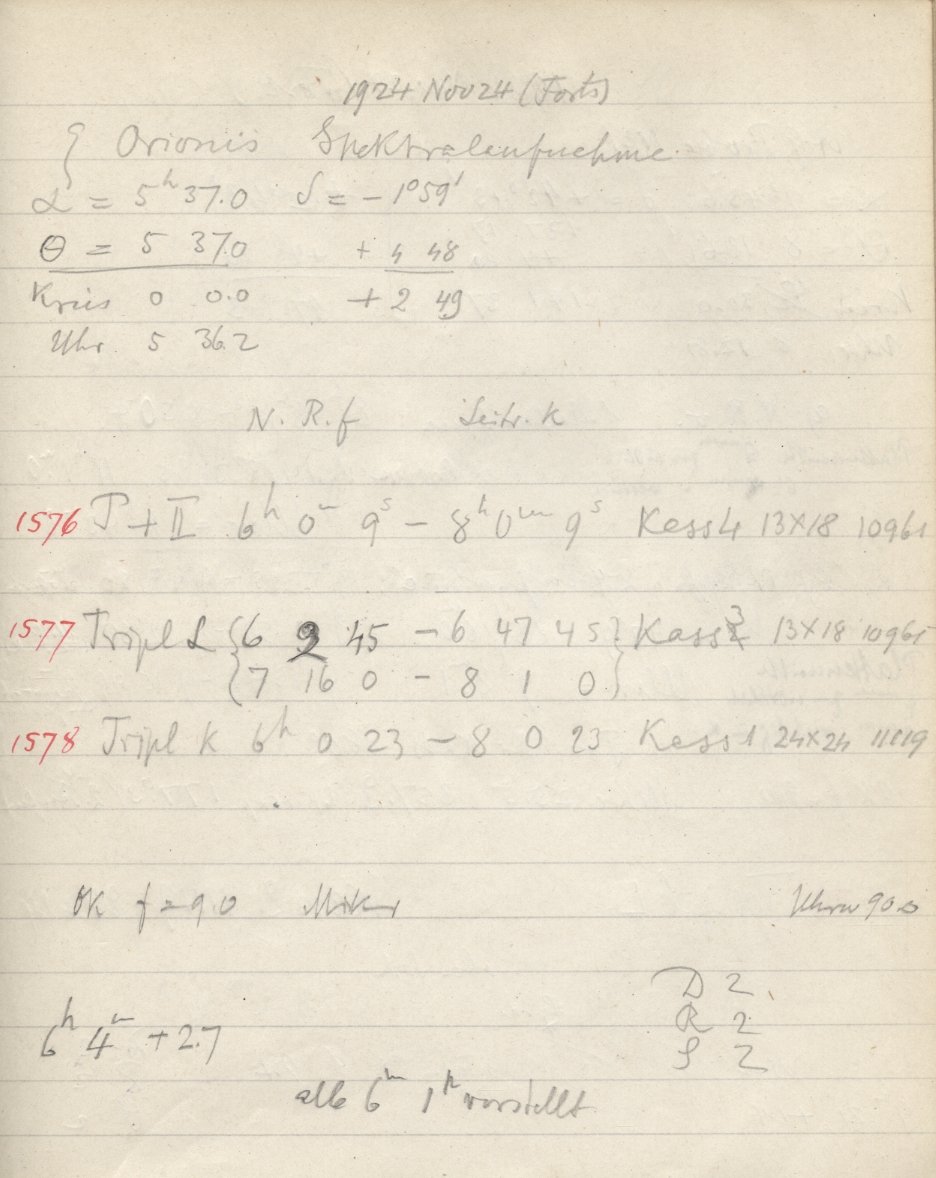 1924 Nov 24 (Forts)
ζ Orionis Spektralaufnahme
α = 5h 37.0 δ = -1°59'
θ = 5 37.0 + 4 48
Kreis 0 0.0 + 2 49
Uhr 5 36.2
N. R. f Leitr. K
1576 T + II 6h 0m 9s - 8h 0m 9s Kass 4 13×18 10961
1577 Tripl L {6 2 45 - 6 47 45} Kass 3 13×18 10965
{7 16 0 - 8 1 0}
1578 Tripl K 6h 0 23 - 8 0 23 Kass 1 24×24 11119
OK f = 9.0 Uhrw 90.0
6h 4m + 2.7
D 2
R 2
S 2
alle 6m 1h verstellt